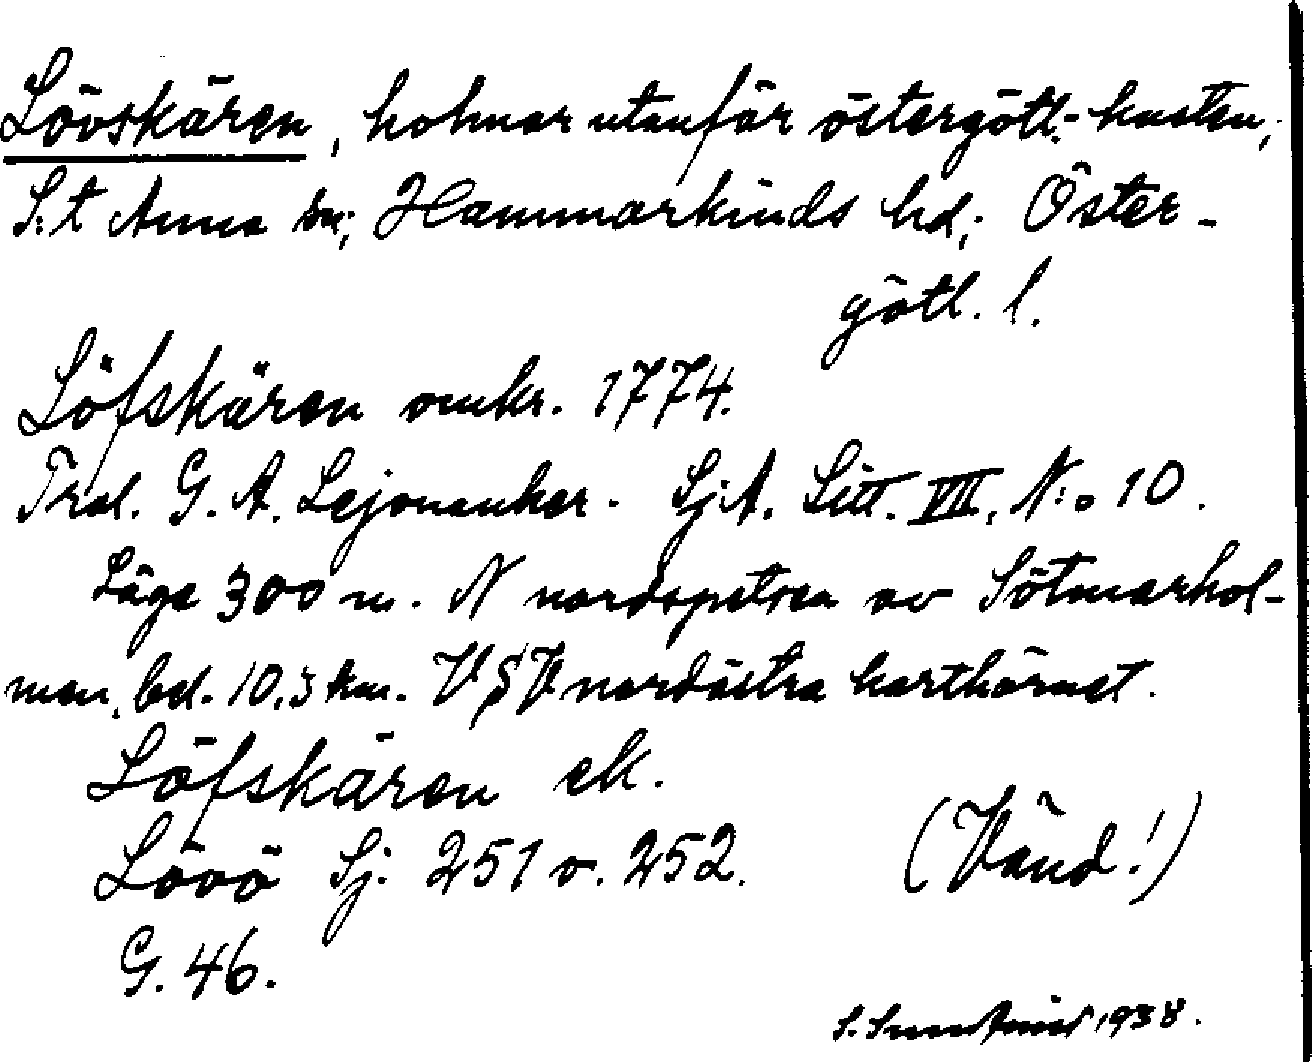 Lövskären, holmar utanför östergötl.-kusten,
S:t Anna sn; Hammarkinds hd; Öster-
götl. l.
Löfskären omkr. 1774.
Trol. G. A. Lejonanker. Sj.A. Litt. VII. N:o 10.
Läge 300 m. N nordspetsen av Sötmarhol-
men, bel. 10,3 km. VSV nordöstra karthörnet.
Löfskären ek.
Lövö Sj. 251 o. 252.
(Vänd!)
G. 46.
S. 1938.